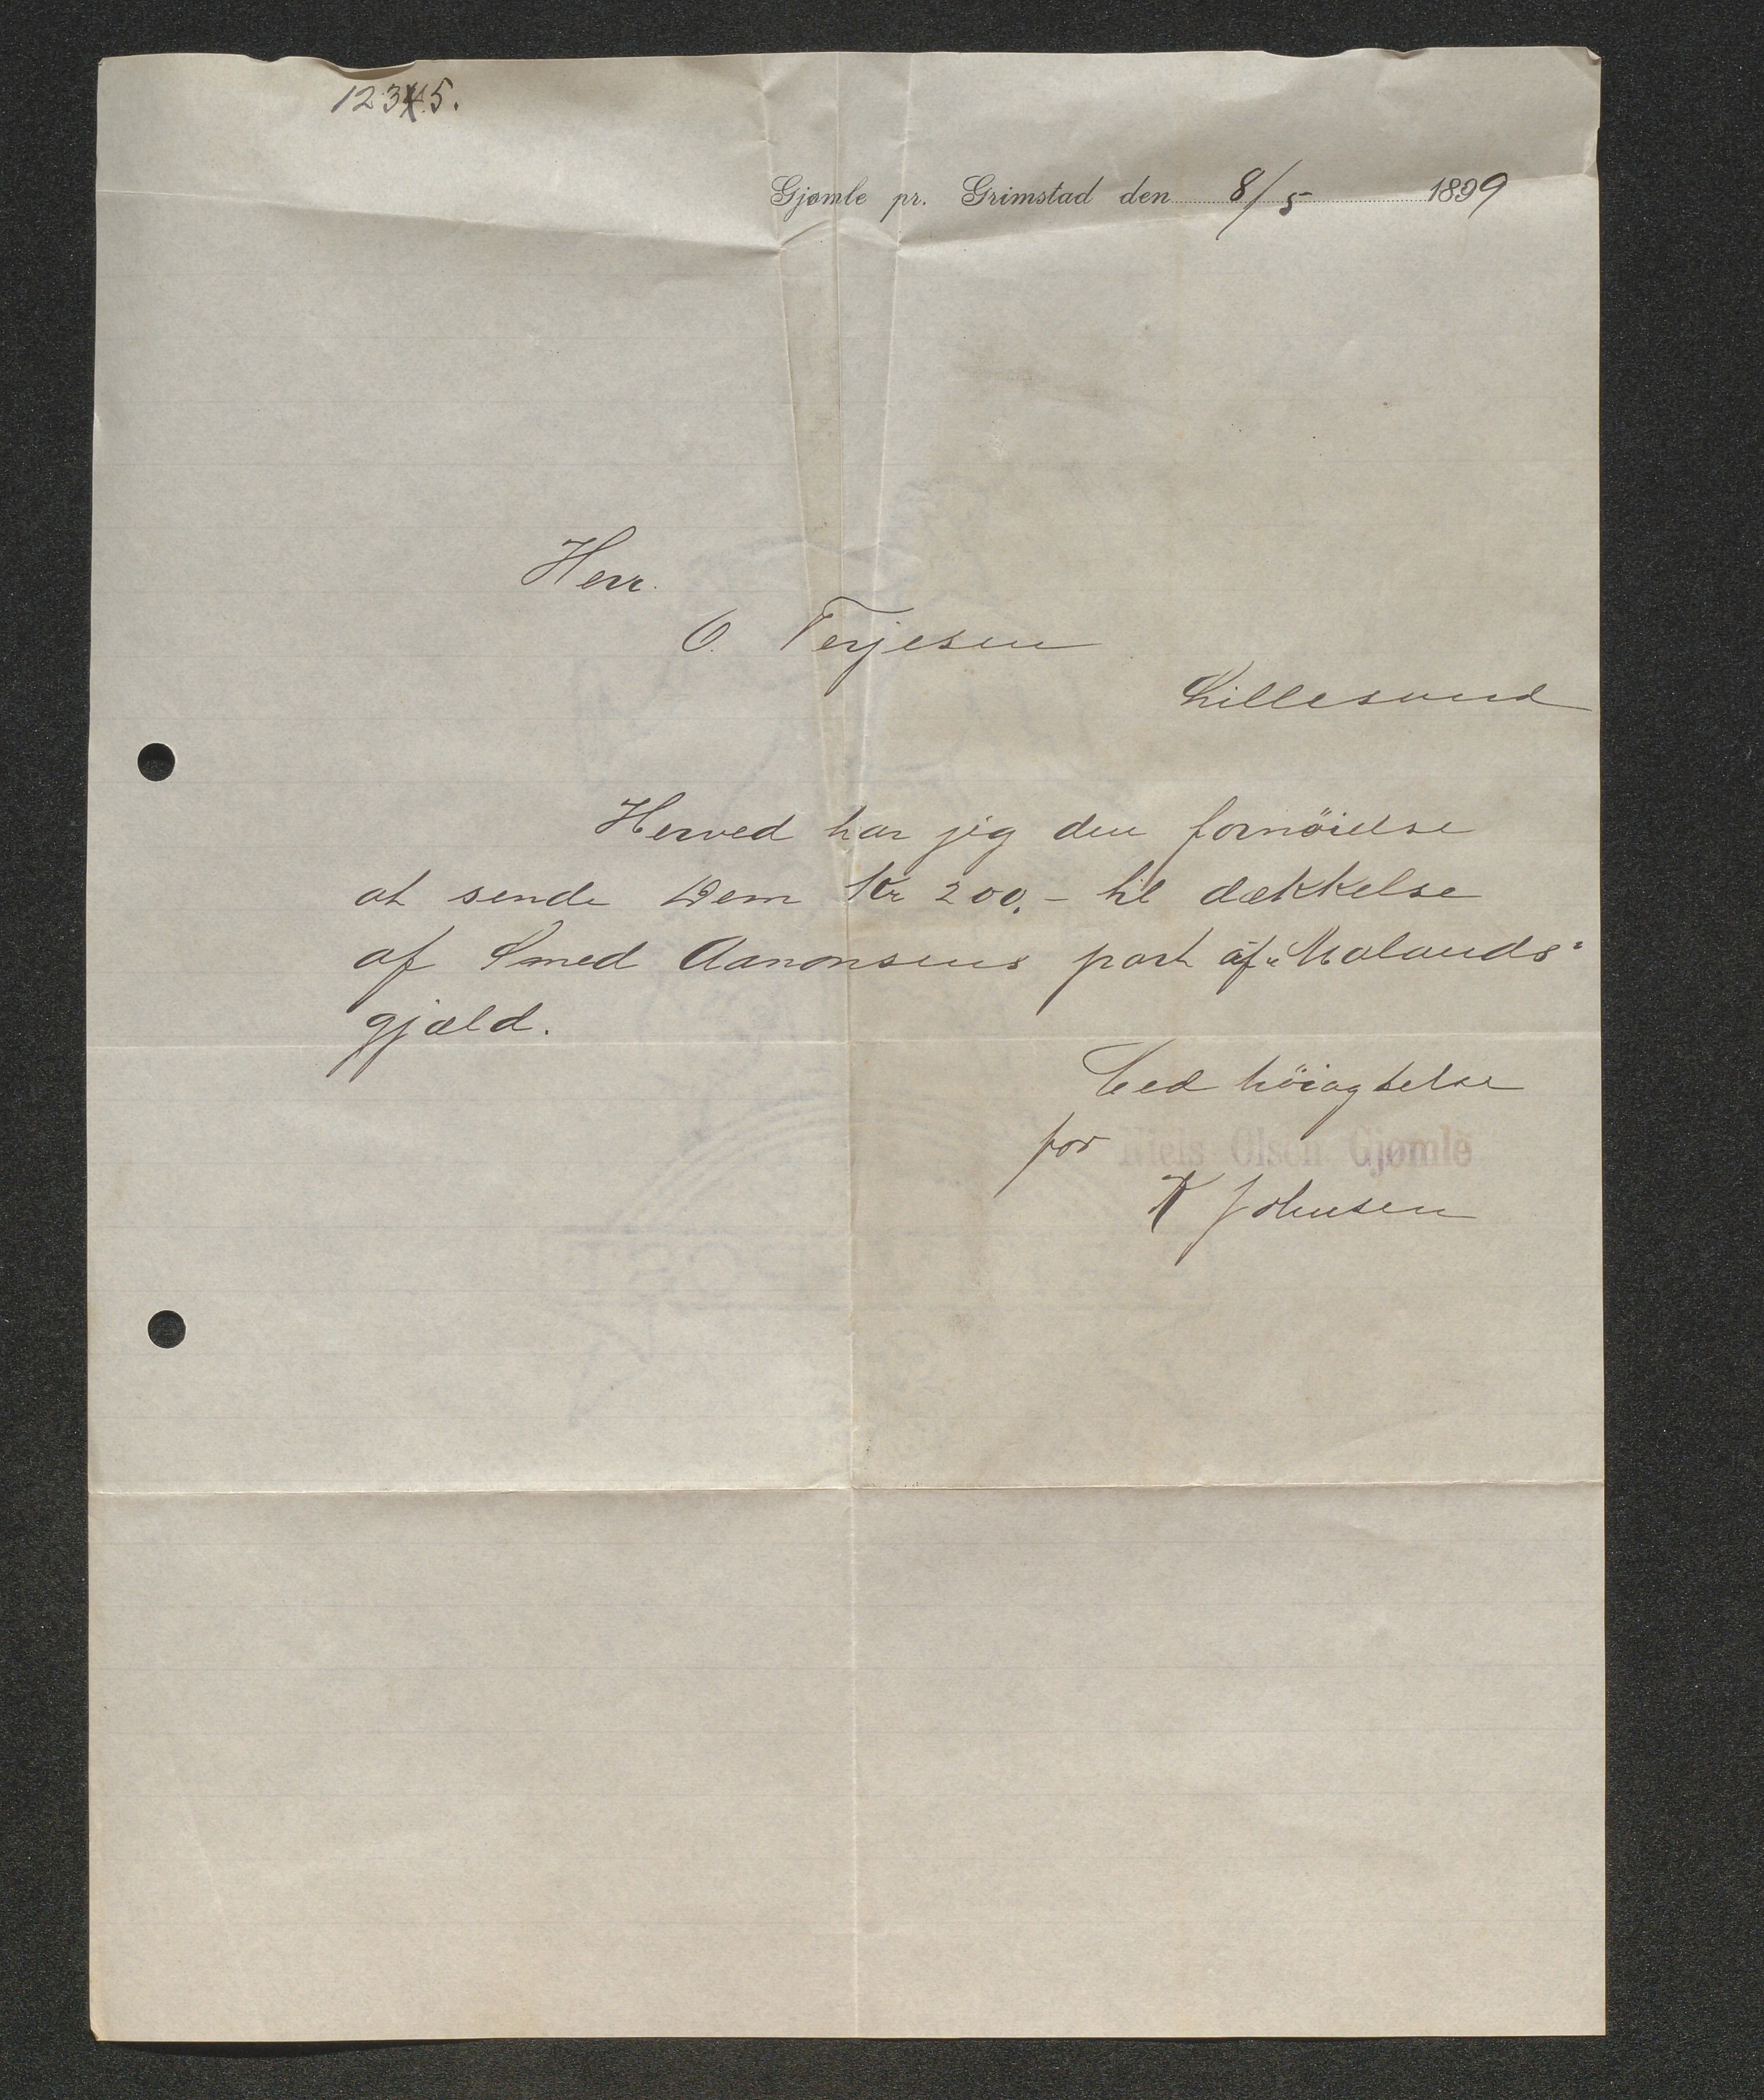 12345.
Gjømle pr. Grimstad den 8/5 1899
Herr.
O. Terjesen
Lillesand
Herved har jeg den fornöielse
at sende Dem Kr 200.- til dækkelse
af Smed Aanonsens part af „Malands“
gjæld.
Med höiagtelse
for Niels Olsen Gjømle
K Johnsen